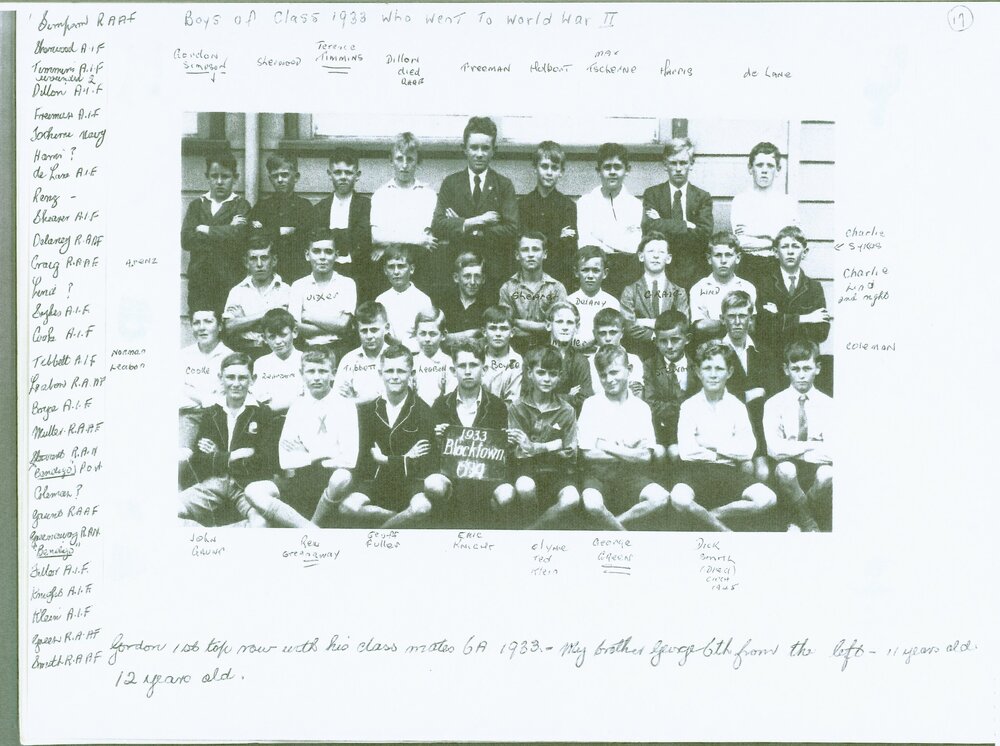 Boys of Class 1933 who went to World War II
17
Simpson RAAF
Sherwood A.I.F
Timmins A.I.F
Dillon A.I.F
Freeman A.I.F
Tscherne Navy
Harris ?
de Lane A.I.F
Renz -
Shearer A.I.F
Delaney RAAF
Craig R.A.A.F
Lind ?
Sykes A.I.F
Cooke A.I.F
Tibbett A.I.F
Leabon R.A.AF
Boyce A.I.F
Muller R.A.AF
Stewart R.A.N
"Bendigo" P.O.W
Coleman ?
Gaunt RAAF
Greenaway RAN
"Bendigo"
Fuller A.I.F.
Knight A.I.F
Klein A.I.F
Green R.A.AF
Smith R.A.AF
Gordon
Simpson
Sherwood
Terence
Timmins
Dillon
died
Freeman
Holbert
Max
Tscherne
Harris
de Lane
Charlie
Sykes
Charlie
Lind
2nd right
Coleman
Norman
Leabon
Shearer
Delany
Craig
Lind
Cooke
Tibbott
Leabon
Boyce
1933
Blacktown
John
Gaunt
Reg
Greenaway
Geoff
Fuller
Eric
Knight
Clyde
Ted
Klein
George
Green
Dick
Smith
(Died)
1945
Gordon 1st top row with his class mates 6A 1933. - My brother George 6th from the left - 11 years old.
12 years old.